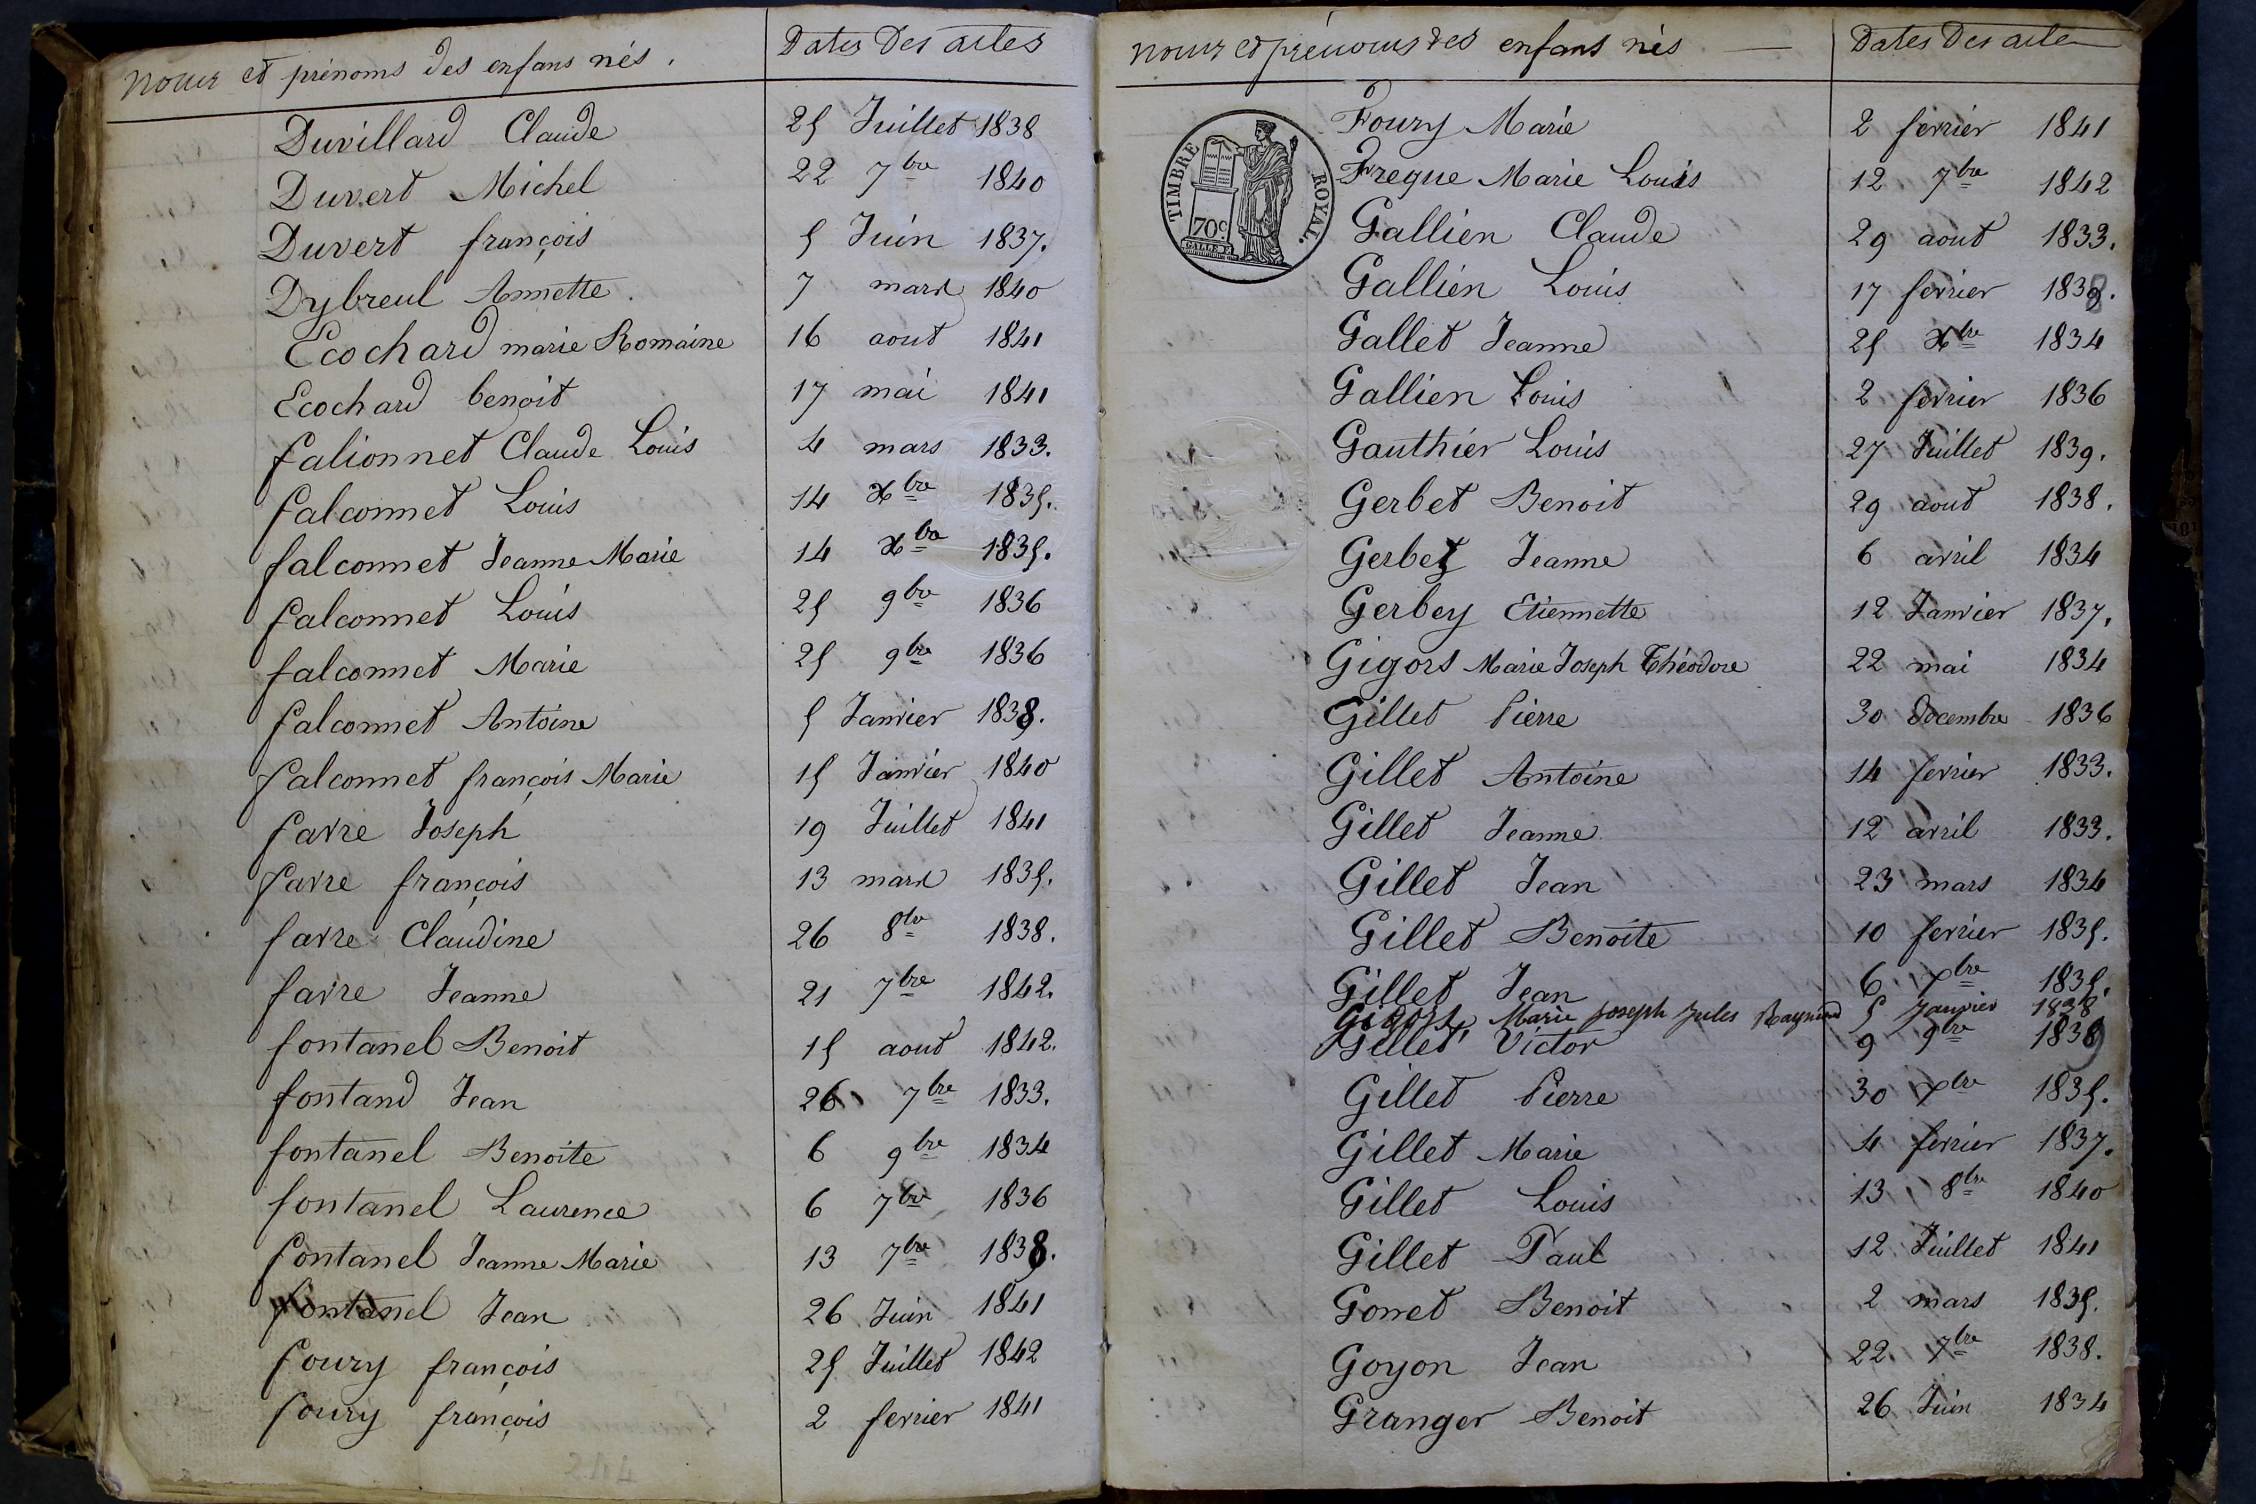 Noms et prénoms des enfans nés. Dates Des actes
Duvillard Claude 25 Juillet 1838
Duvert Michel 22 7bre 1840
Duvert françois 5 Juin 1837.
Dybreul Annette. 7 mars 1840
Ecochard marie Romaine 16 aout 1841
Ecochard benoit 17 mai 1841
falionnet Claude Louis 4 mars 1833.
falconnet Louis 14 Xbre 1835.
falconnet Jeanne Marie 14 Xbre 1835.
falconnet Louis 25 9bre 1836
falconnet Marie 25 9bre 1836
falconnet Antoine 5 Janvier 1839.
falconnet françois Marie 15 Janvier 1840
favre Joseph 19 Juillet 1841
favre françois 13 mars 1835.
favre Claudine 26 8bre 1838.
favre Jeanne 21 7bre 1842.
fontanel Benoit 15 aout 1842.
fontand Jean 26 7bre 1833.
fontanel Benoite 6 9bre 1834
fontanel Laurence 6 7bre 1836
fontanel Jeanne Marie 13 7bre 1838.
fontanel Jean 26 Juin 1841
foury françois 25 Juillet 1842
foury françois 2 fevrier 1841
244
Noms et prénoms des enfans nés Dates Des acte
TIMBRE ROYAL.
70c
Foury Marie 2 fevrier 1841
Freque Marie Louis 12 7bre 1842
Gallien Claude 29 aout 1833.
Gallien Louis 17 fevrier 1838.
Gallet Jeanne 25 Xbre 1834
Gallien Louis 2 fevrier 1836
Gauthier Louis 27 Juillet 1839.
Gerbet Benoit 29 aout 1838.
Gerbet Jeanne 6 avril 1834
Gerbey Etiennette 12 Janvier 1837.
Gigors Marie Joseph Théodore 22 mai 1834
Gillet Pierre 30 Decembre 1836
Gillet Antoine 14 fevrier 1833.
Gillet Jeanne 12 avril 1833.
Gillet Jean 23 mars 1834
Gillet Benoite 10 fevrier 1835.
Gillet Jean 6 7bre 1835.
Gigors, Marie Joseph Jules Raymond 5 Janvier 1838
Gillet Victor 9 9bre 1839
Gillet Pierre 30 7bre 1835.
Gillet Marie 4 fevrier 1837.
Gillet Louis 13 8bre 1840
Gillet Paul 12 Juillet 1841
Gonet Benoit 2 mars 1835.
Goyon Jean 22 7bre 1838.
Granger Benoit 26 Juin 1834